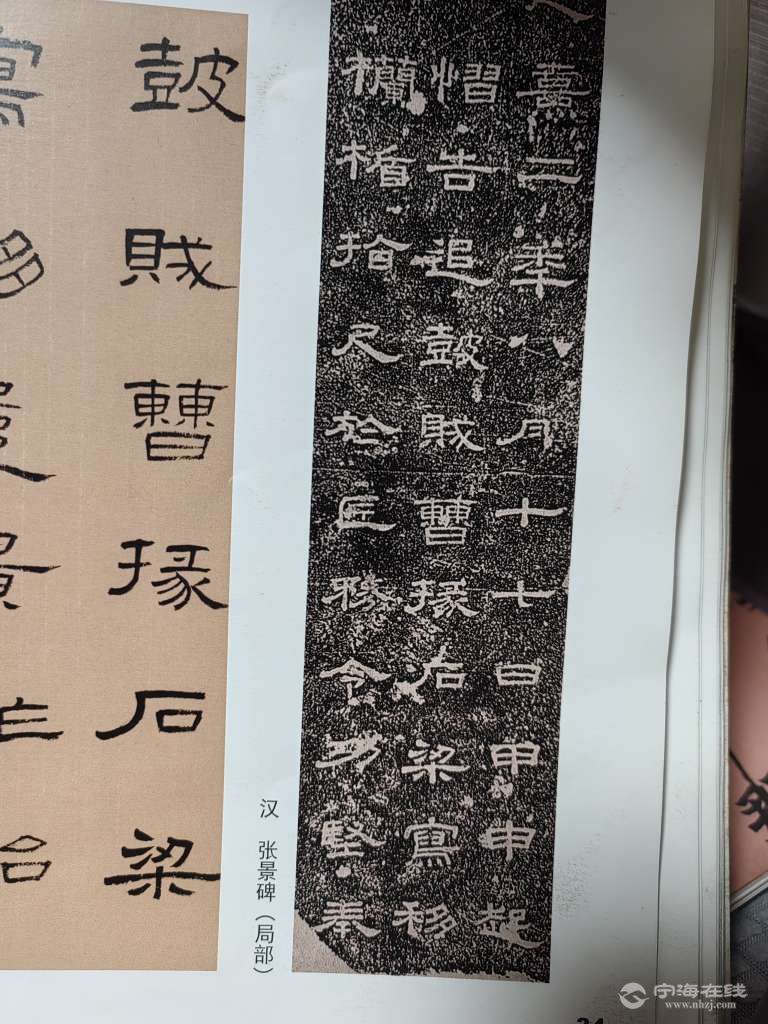 鼓賊曹掾石梁
寫移遣景作治
熹二年八月十七日甲申起
慴告追鼓賊曹掾石梁寫移
欄楯拾尺於匠務令功堅奉
汉 张景碑（局部）
宁海在线
www.nhzj.com